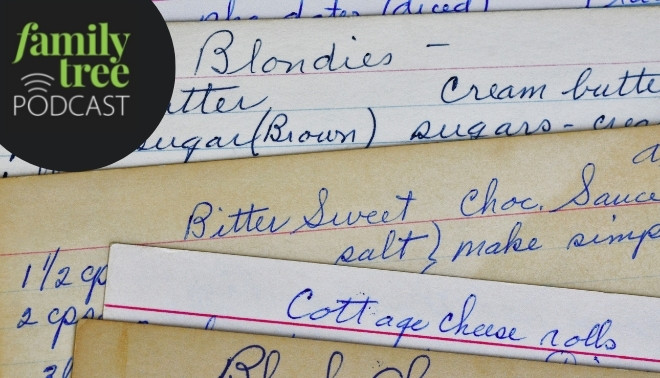 family
tree
PODCAST
pkg dates (diced)
Blondies -
utter Cream butte
sugar (Brown) sugars - crea
Bitter Sweet Choc. Sauce
salt } make simp
1 1/2 cps
2 cps
Cottage cheese rolls